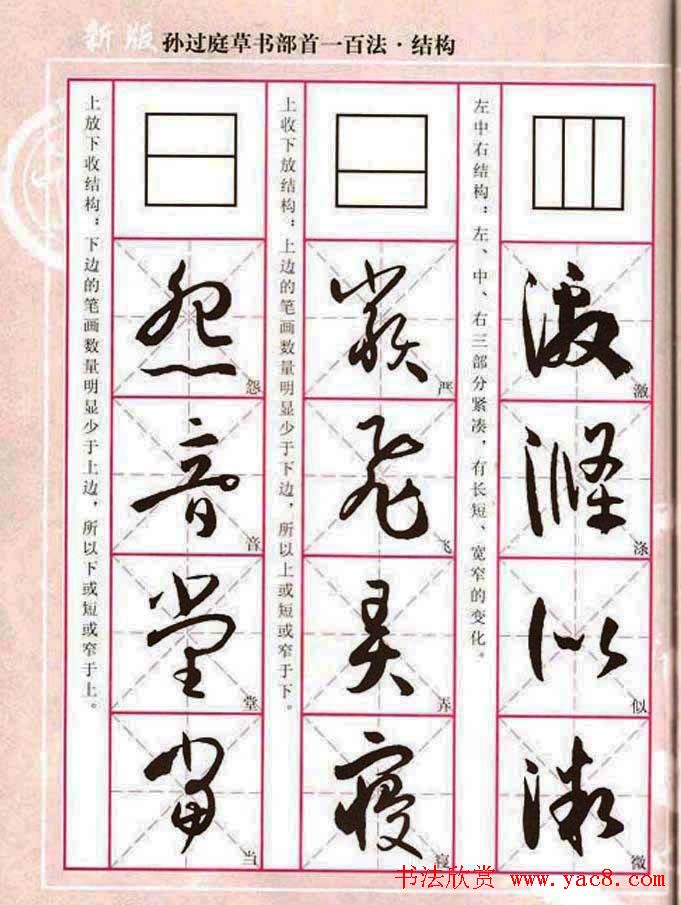 新版 孙过庭草书部首一百法·结构
左中右结构：左、中、右三部分紧凑，有长短、宽窄的变化。
激
涤
似
微
上收下放结构：上边的笔画数量明显少于下边，所以上或短或窄于下。
严
飞
弄
寝
上放下收结构：下边的笔画数量明显少于上边，所以下或短或窄于上。
怨
音
堂
当
书法欣赏 www.yac8.com